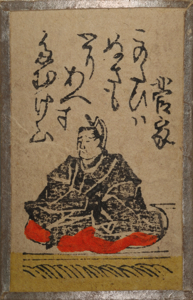 菅家
このたびは
ぬさも
とりあへす
たむけ山